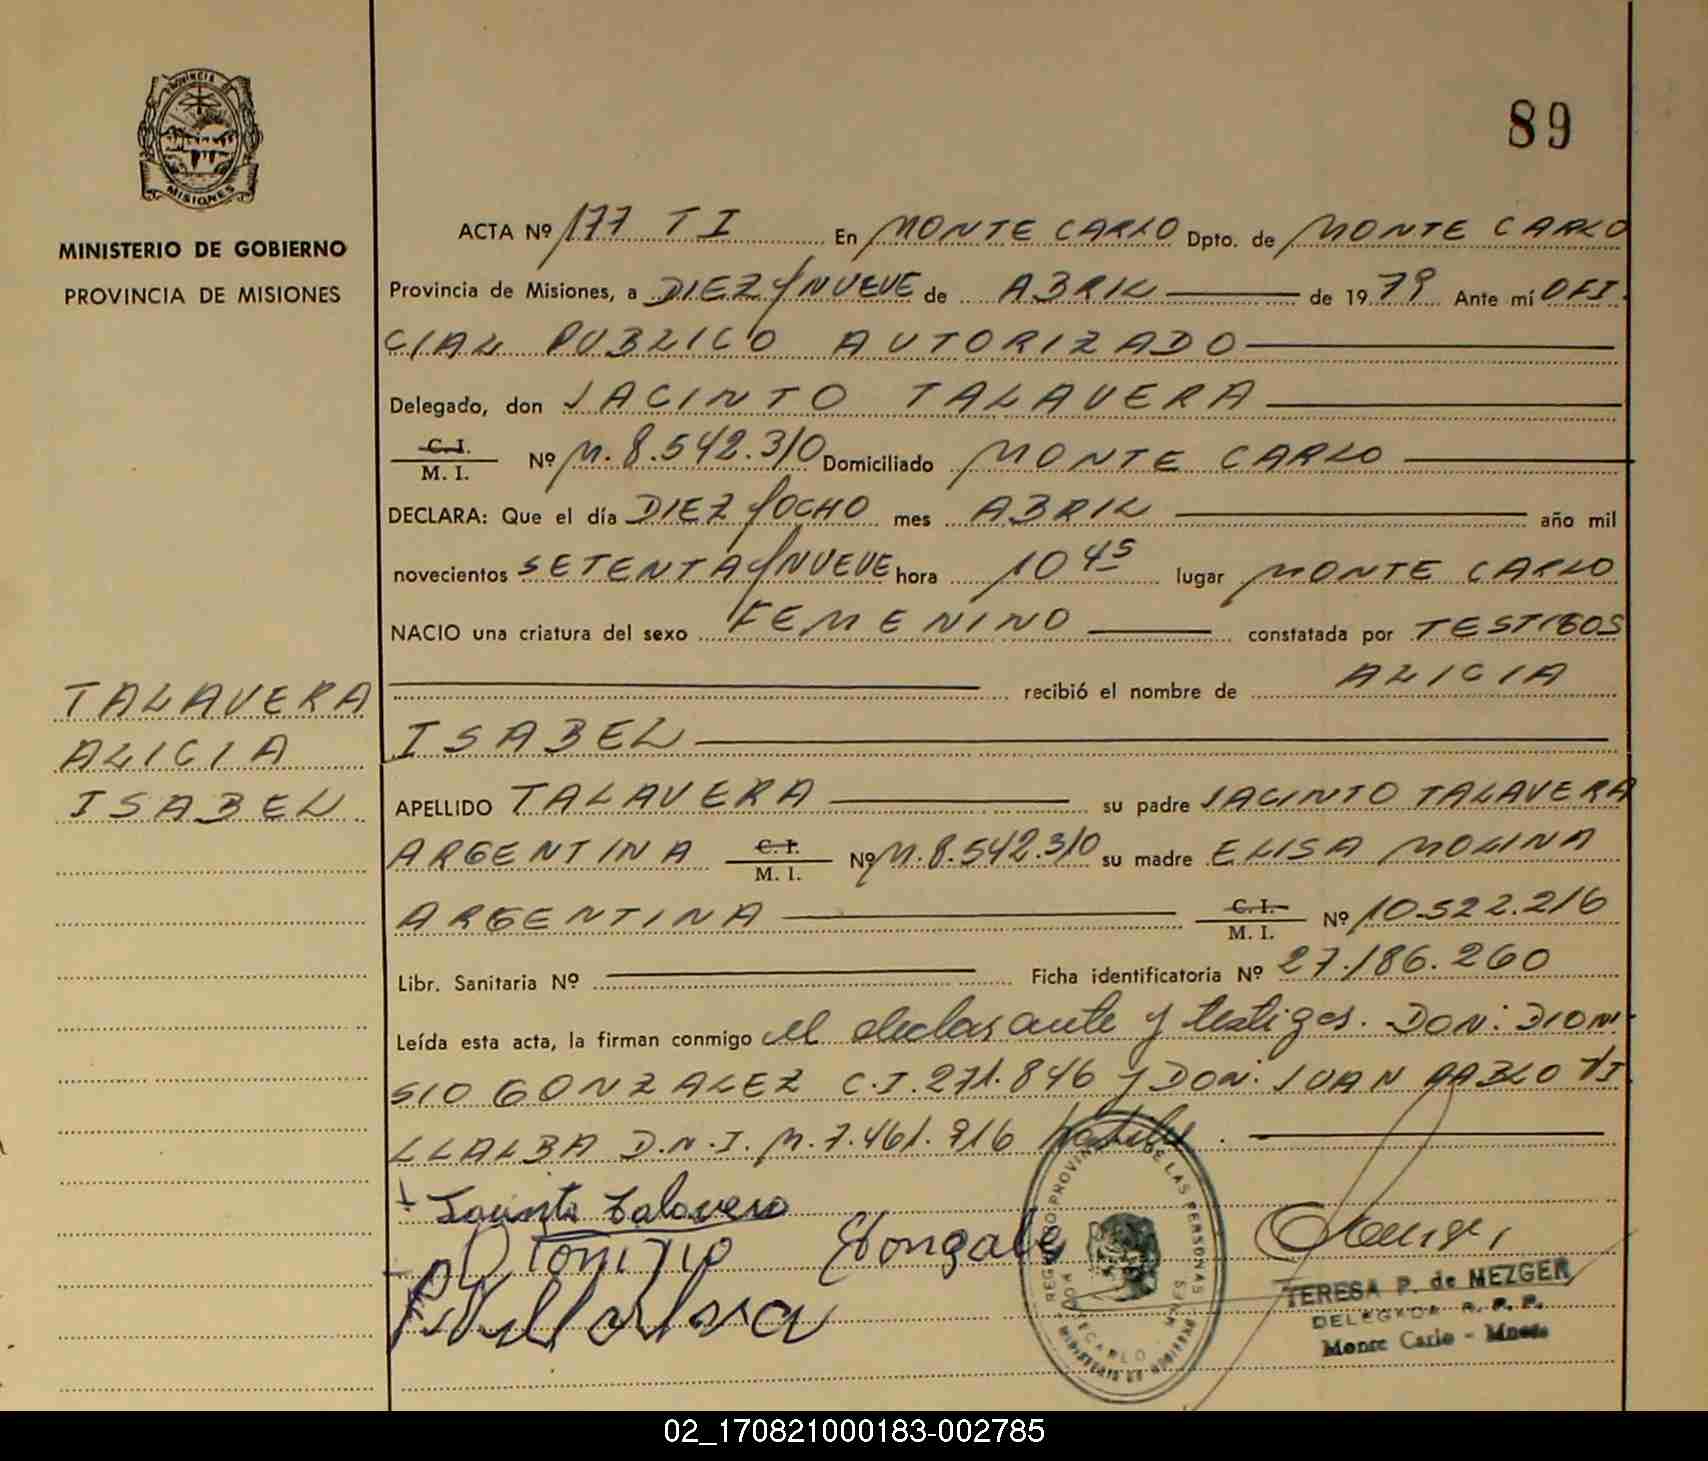 PROVINCIA DE
MISIONES
MINISTERIO DE GOBIERNO
PROVINCIA DE MISIONES
TALAVERA
ALICIA
ISABEL
89
ACTA Nº 177 TI En MONTE CARLO Dpto. de MONTE CARLO
Provincia de Misiones, a DIEZ Y NUEVE de ABRIL de 1979 Ante mí OFI
CIAL PUBLICO AUTORIZADO
Delegado, don JACINTO TALAVERA
C.I.
M. I. Nº M. 8.542.310 Domiciliado MONTE CARLO
DECLARA: Que el día DIEZ Y OCHO mes ABRIL año mil
novecientos SETENTA Y NUEVE hora 10 45 lugar MONTE CARLO
NACIO una criatura del sexo FEMENINO constatada por TESTIGOS
recibió el nombre de ALICIA
ISABEL
APELLIDO TALAVERA su padre JACINTO TALAVERA
ARGENTINA C.I. M. I. Nº M. 8.542.310 su madre ELISA MOLINA
ARGENTINA C.I. M. I. Nº 10.522.216
Libr. Sanitaria Nº Ficha identificatoria Nº 27.186.260
Leída esta acta, la firman conmigo el declarante y testigos. DON: DIONI
SIO GONZALEZ C.I. 271.846 y DON: JUAN PABLO VI
LLALBA D.N.I. M. 7.461.916
Jacinto Talavera
Dionisio Gonzale
P Villalva
REGISTRO PROVINCIAL DE LAS PERSONAS
MONTECARLO
TERESA P. de MEZGER
DELEGADA R. P. P.
Monte Carlo - Mnes
02_170821000183-002785